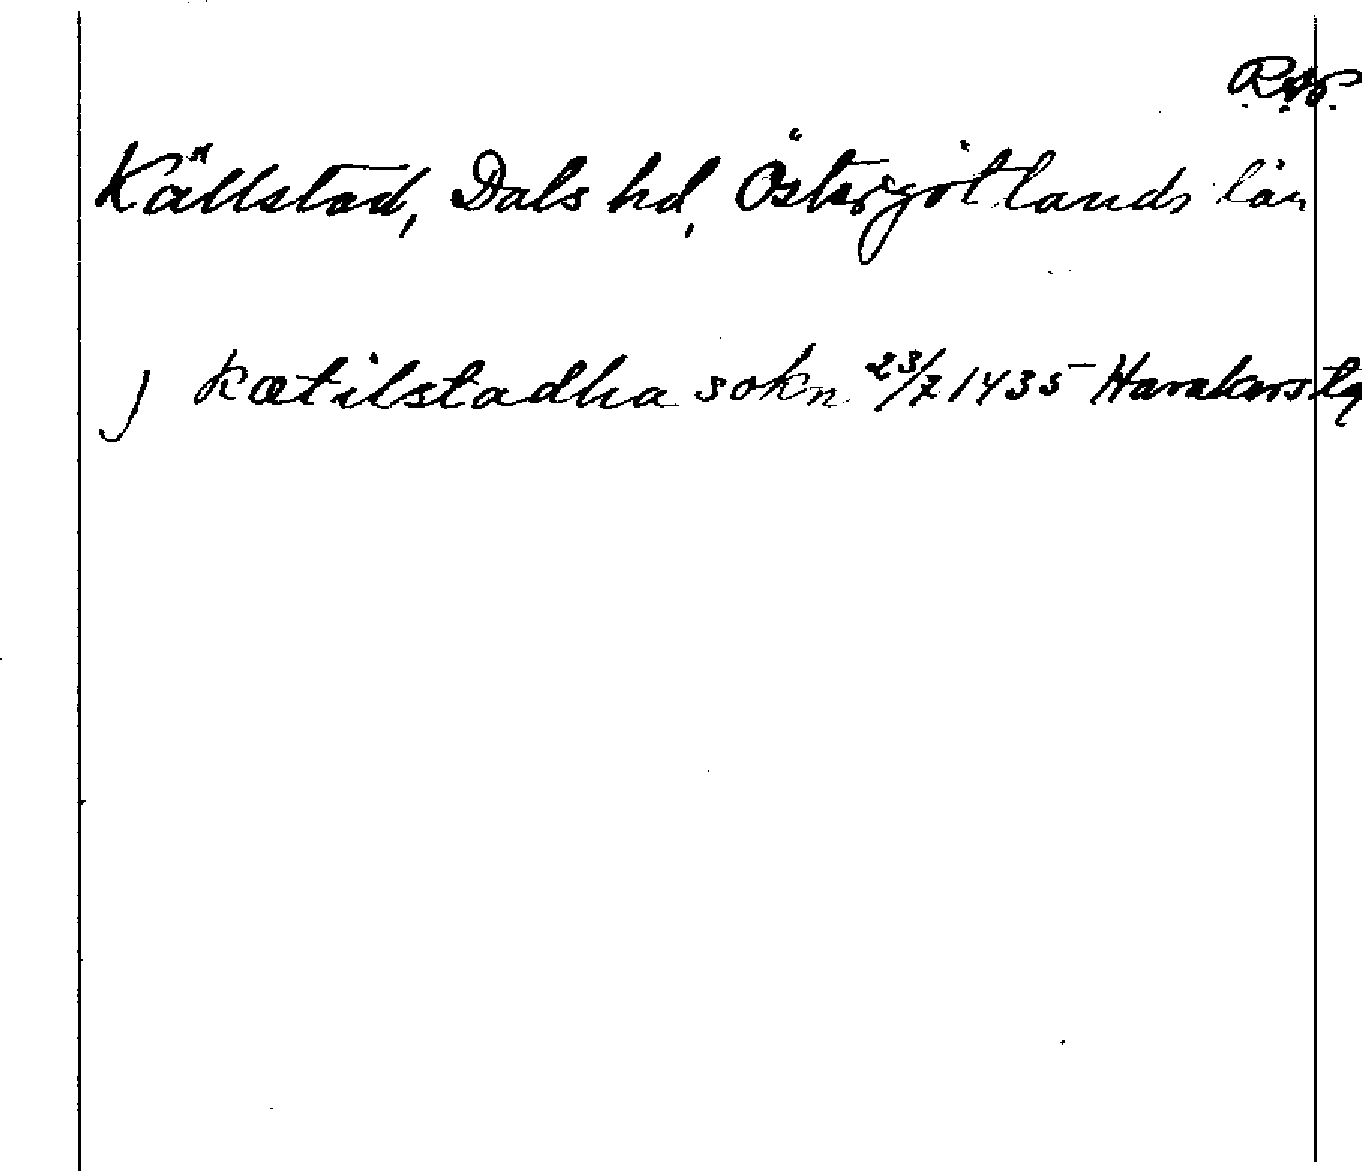 Källstad, Dals hd, Östergötlands län
j Kætilstadha sokn 23/7 1435